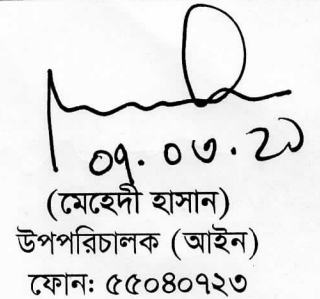 ০৭. ০৩. ২১
(মেহেদী হাসান)
উপপরিচালক (আইন)
ফোন: ৫৫০৪০৭২৩